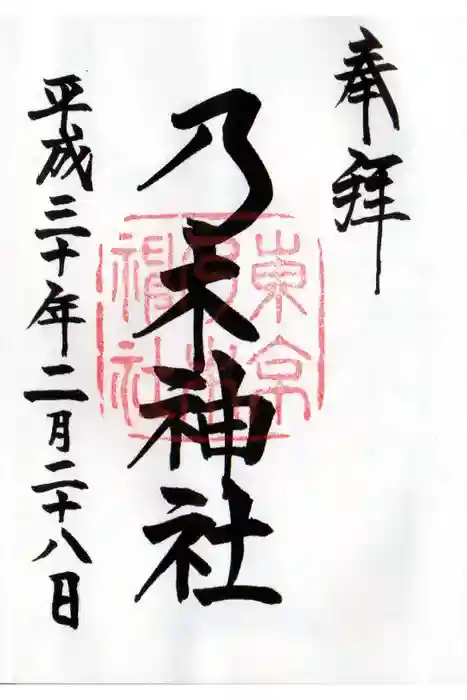 奉拝
乃木神社
東京
乃木
神社
平成三十年二月二十八日